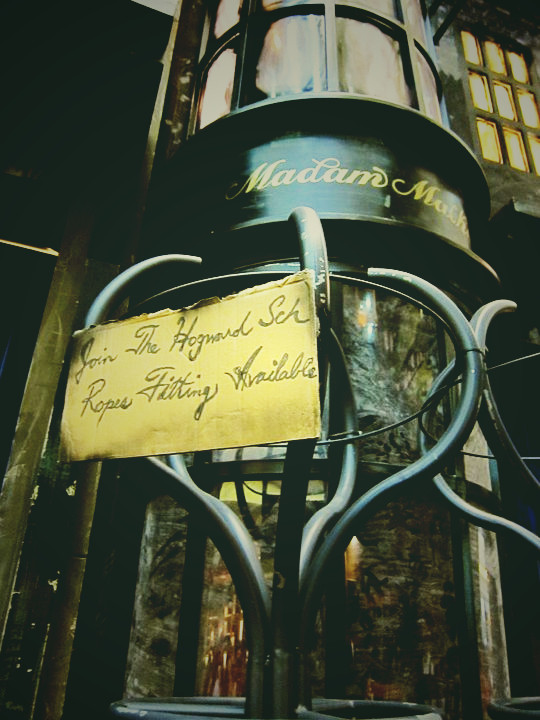 Madam
Join The Hogward Sch
Ropes Fitting Available